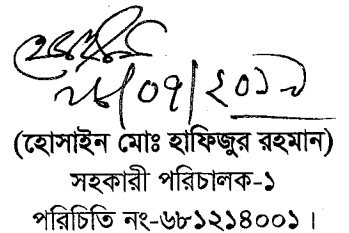 /০৭/২০১৯
(হোসাইন মোঃ হাফিজুর রহমান)
সহকারী পরিচালক-১
পরিচিতি নং-৬৮১২১৪০০১।